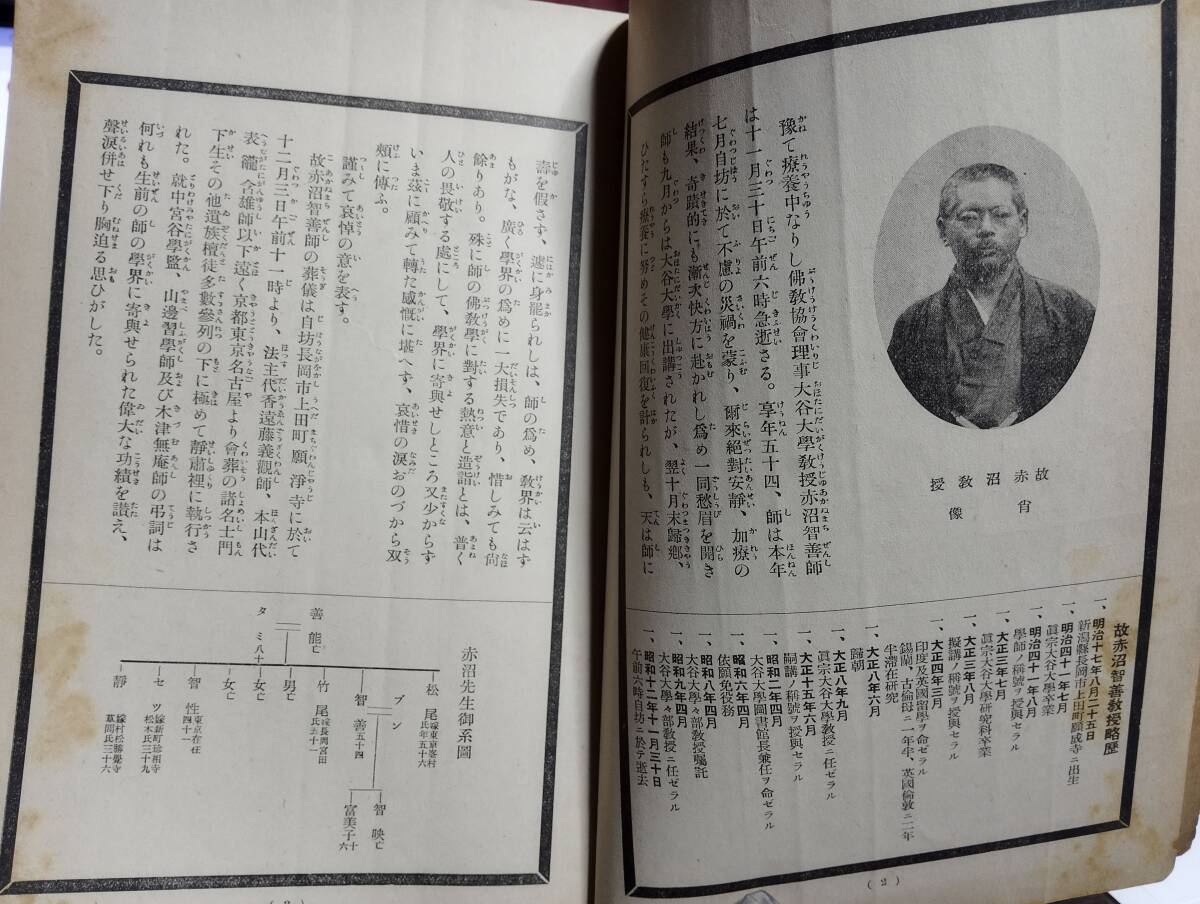 故
赤沼教授
肖像
豫て療養中なりし佛教協會理事大谷大學教授赤沼智善師
は十一月三十日午前六時急逝さる。享年五十四、師は本年
七月自坊に於て不慮の災禍を蒙り、爾來絕對安靜、加療の
結果、寄蹟的にも漸次快方に赴かれし爲め一同愁眉を開き
師も九月からは大谷大學に出講されたが、翌十月末歸鄕、
ひたすら療養に努めその健康回復を計られしも、天は師に
故赤沼智善教授略歷
一、明治十七年八月二十五日
新潟縣長岡市上田町願成寺ニ出生
一、明治四十一年七月
眞宗大谷大學卒業
一、明治四十一年八月
學師ノ稱號ヲ授與セラル
一、大正三年七月
眞宗大谷大學硏究科卒業
一、大正三年八月
擬講ノ稱號ヲ授與セラル
一、大正四年三月
印度及英國留學ヲ命ゼラル
錫蘭、古倫母ニ一年半、英國倫敦ニ二年
半滯在硏究
一、大正八年六月
歸朝
一、大正八年九月
眞宗大谷大學教授ニ任ゼラル
一、大正十五年六月
嗣講ノ稱號ヲ授與セラル
一、昭和二年四月
大谷大學圖書館長兼任ヲ命ゼラル
一、昭和六年四月
依願免役務
一、昭和八年四月
大谷大學々部教授囑託
一、昭和九年四月
大谷大學々部教授ニ任ゼラル
一、昭和十二年十一月三十日
午前六時自坊ニ於テ逝去
(2)
壽を假さず、遽に身罷られしは、師の爲め、教界は云はず
もがな、廣く學界の爲めに一大損失であり、惜しみても尙
餘りあり。殊に師の佛教學に對する熱意と造詣とは、普く
人の畏敬する處にして、學界に寄與せしところ又少からず
いま茲に顧みて轉た感慨に堪へず、哀惜の淚おのづから双
頰に傳ふ。
謹みて哀悼の意を表す。
故赤沼智善師の葬儀は自坊長岡市上田町願淨寺に於て
十二月三日午前十一時より、法主代香遠藤義觀師、本山代
表龍含雄師以下遠く京都東京名古屋より會葬の諸名士門
下生その他遺族檀徒多數參列の下に極めて靜肅裡に執行さ
れた。就中宮谷學監、山邊習學師及び木津無庵師の弔詞は
何れも生前の師の學界に寄與せられた偉大な功績を讃え、
聲淚併せ下り胸迫る思ひがした。
赤沼先生御系圖
善能亡
タミ八十
松尾
嫁東京峯村
氏年五十六
ブン
智善五十四
智映亡
富美子十六
竹尾
嫁長岡宮田
氏五十一
男亡
女亡
女亡
智性
東京在住
四十二
セツ
嫁新町珍祖寺
松木氏三十九
靜
嫁村松勝覺寺
草間氏三十六